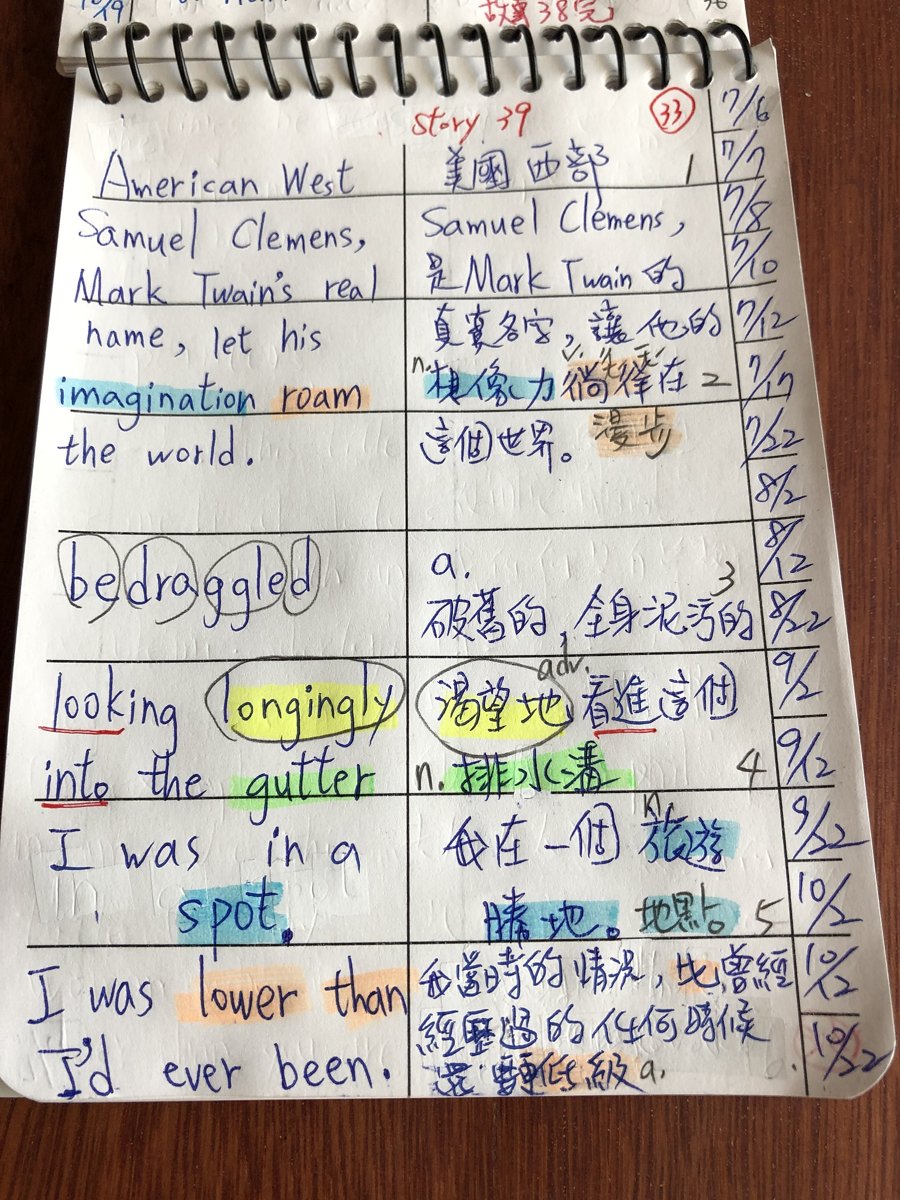 10/19
故事38完
36
story 39
33
7/6
American West
美國西部 1
7/7
Samuel Clemens,
Samuel Clemens,
7/8
Mark Twain's real
是Mark Twain 的
7/10
name, let his
真實名字，讓他的
7/12
imagination roam
n. 想像力徜徉在 2
v.
7/17
the world.
這個世界。 漫步
7/22
8/2
bedraggled
a.
8/12
破舊的，全身泥污的 3
8/22
looking longingly
渴望地 adv. 看進這個
9/2
into the gutter
n. 排水溝 4
9/12
I was in a
我在一個 n. 旅遊
9/22
spot.
勝地。 地點 5
10/2
I was lower than
我當時的情況，比曾經
10/12
經歷過的任何時候
I'd ever been.
還要低級 a.
10/22